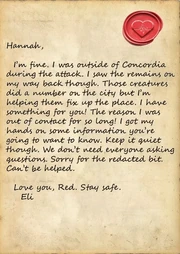 Hannah,
I'm fine. I was outside of Concordia
during the attack. I saw the remains on
my way back though. Those creatures
did a number on the city but I'm
helping them fix up the place. I have
something for you! The reason I was
out of contact for so long! I got my
hands on some information you're
going to want to know. Keep it quiet
though. We don't need everyone asking
questions. Sorry for the redacted bit.
Can't be helped.
Love you, Red. Stay safe.
Eli